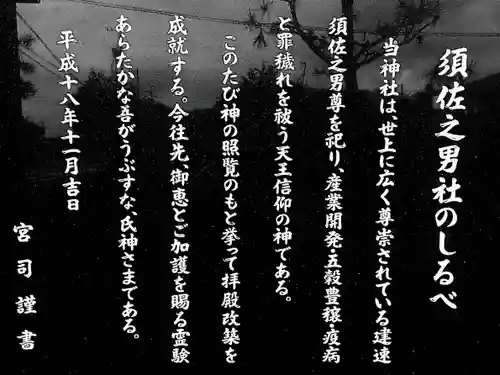 須佐之男社のしるべ
当神社は、世上に広く尊崇されている建速
須佐之男尊を祀り、産業開発・五穀豊穣・疫病
と罪穢れを祓う天王信仰の神である。
このたび神の照覧のもと挙って拝殿改築を
成就する。今往先、御恵とご加護を賜る霊験
あらたかな吾がうぶすな、氏神さまである。
平成十八年十一月吉日
宮司 謹書